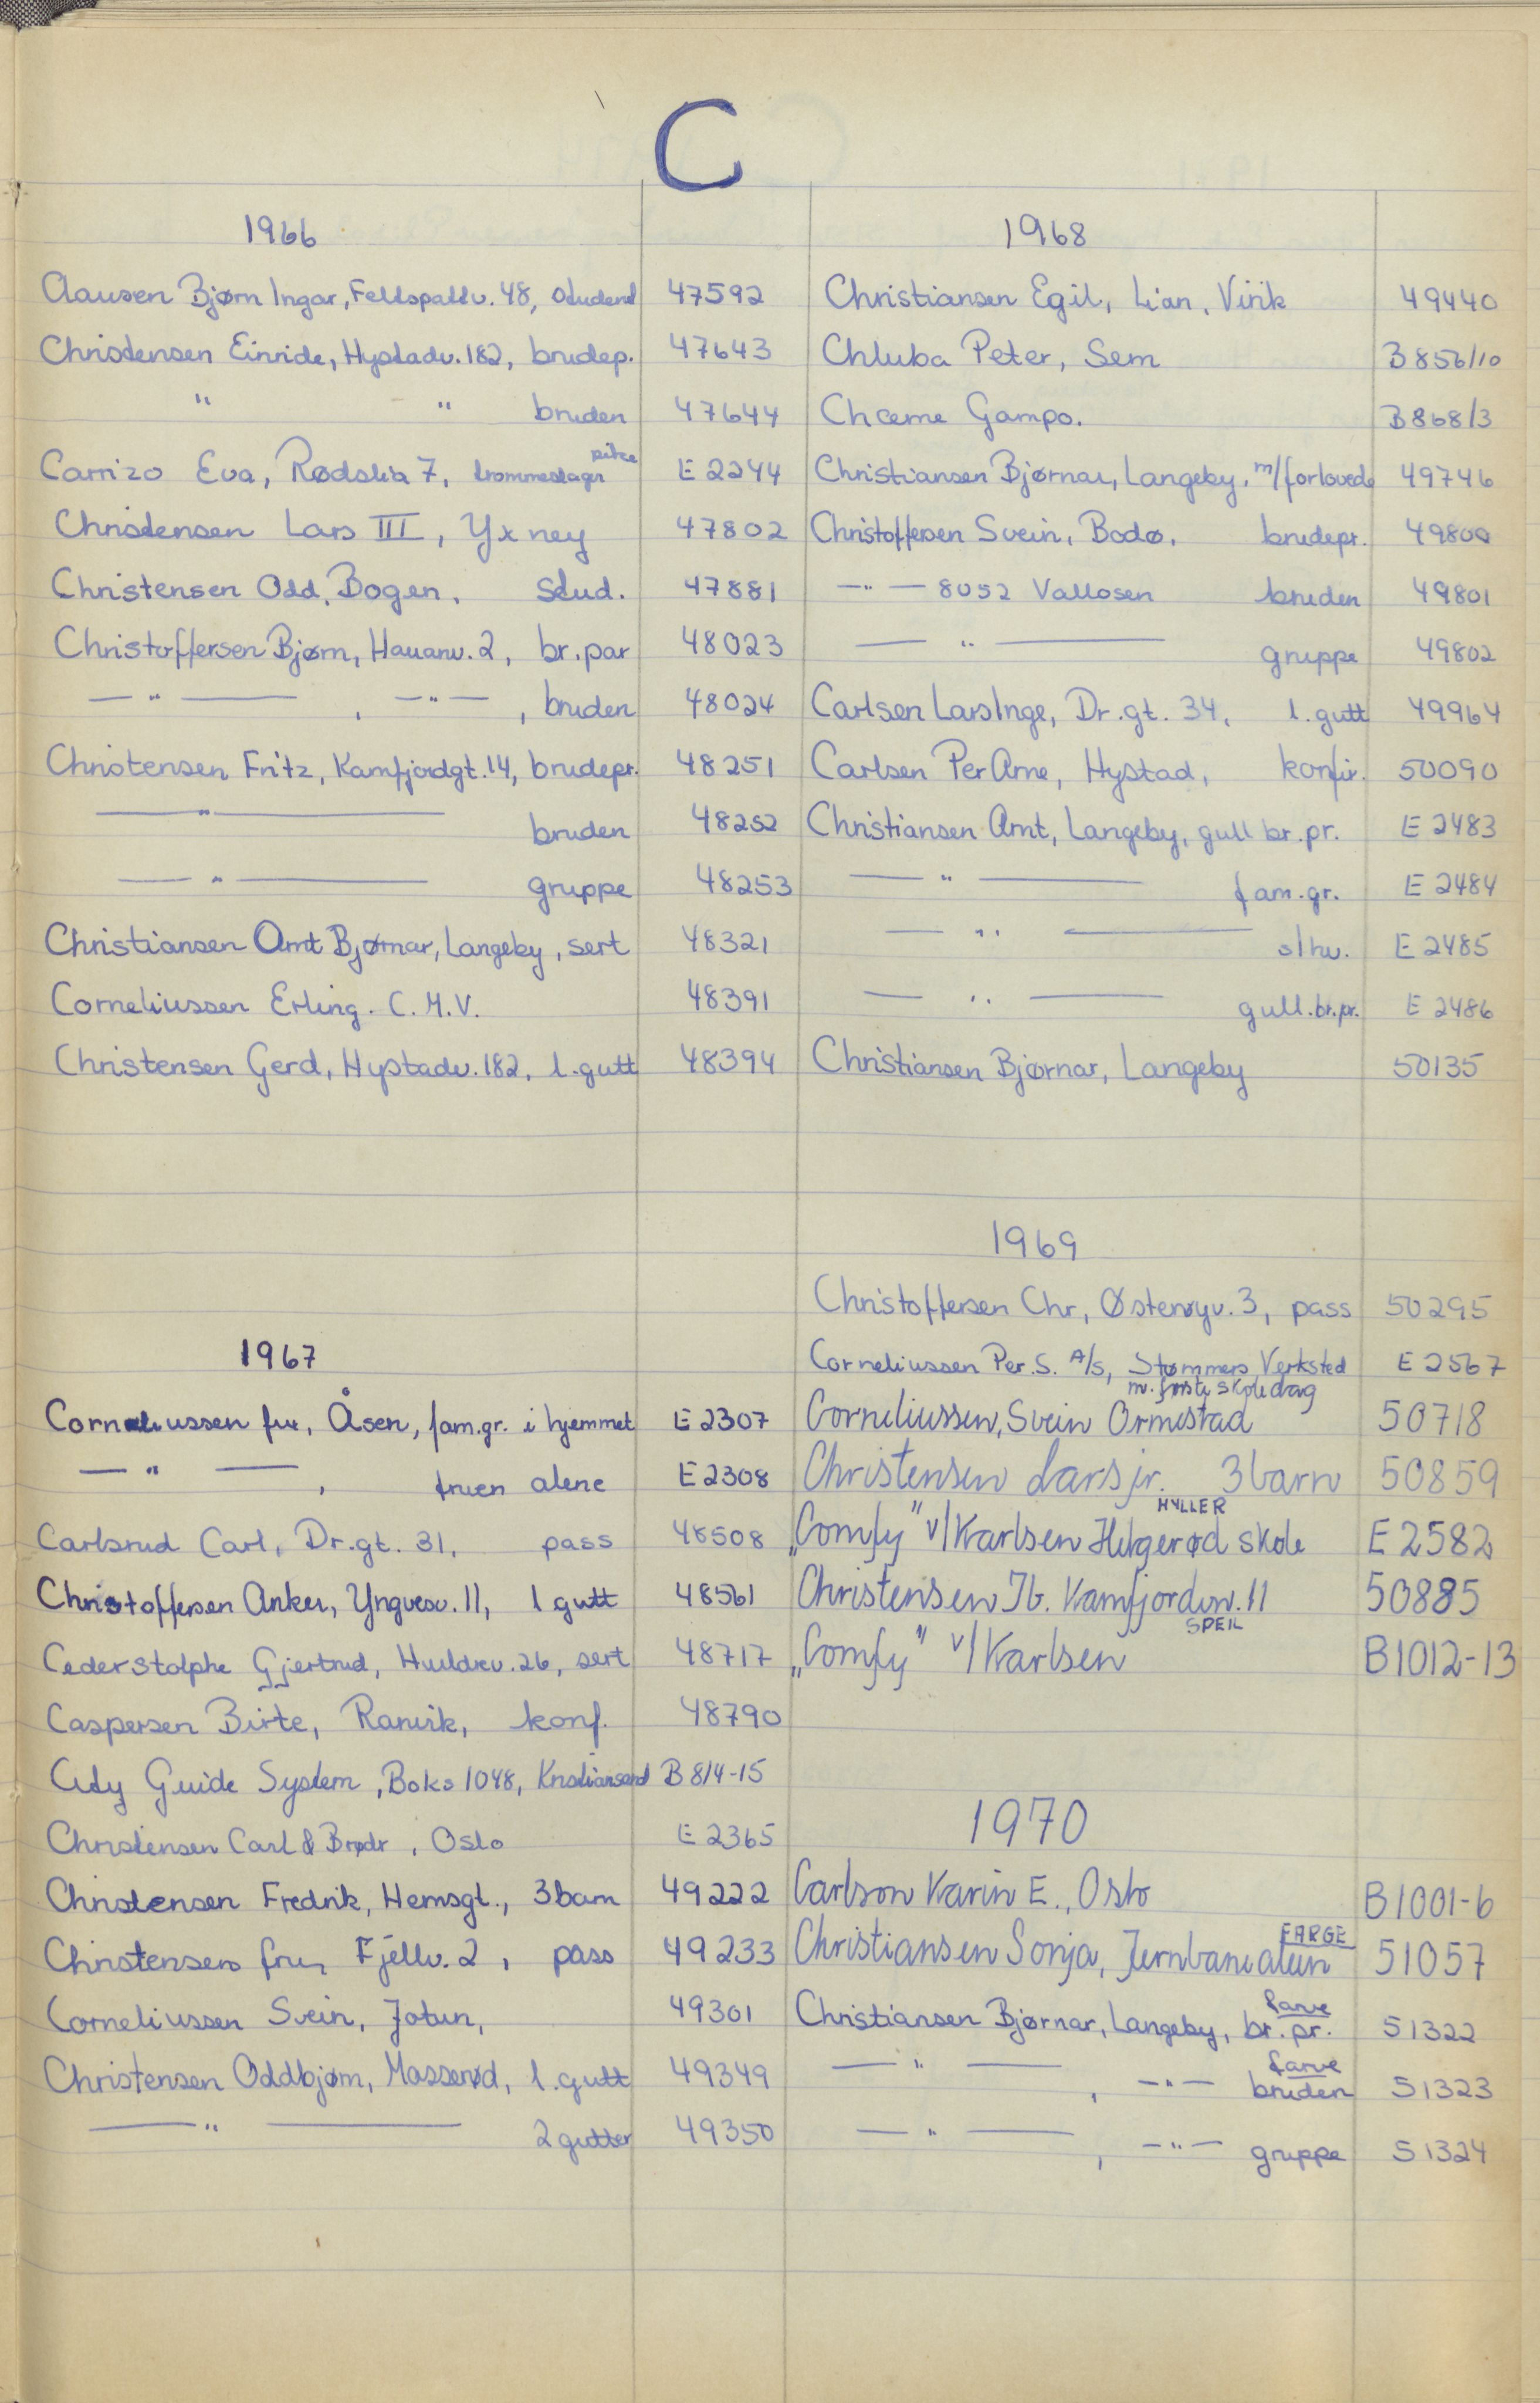 C
1966
Clausen Bjørn Ingar, Feltspatv. 48, student 47592
Christensen Einride, Hystadv. 182, brudep. 47643
" " bruden 47644
Carrizo Eva, Rødslia 7, trommeslager pike E 2244
Christensen Lars III, Yxney 47802
Christensen Odd, Bogen, stud. 47881
Christoffersen Bjørn, Hauanv. 2, br.par 48023
— " — , — " — , bruden 48024
Christensen Fritz, Kamfjordgt. 14, brudepr. 48251
— " — bruden 48252
— " — gruppe 48253
Christiansen Arnt Bjørnar, Langeby, sert 48321
Corneliussen Erling. C.M.V. 48391
Christensen Gerd, Hystadv. 182, l.gutt 48394
1967
Corneliussen fru, Åsen, fam.gr. i hjemmet E 2307
— " — , fruen alene E 2308
Carlsrud Carl, Dr.gt. 31, pass 48508
Christoffersen Anker, Yngvesv. 11, l gutt 48561
Cederstolphe Gjertrud, Huldrev. 26, sert 48717
Caspersen Birte, Ranvik, konf. 48790
City Guide System, Boks 1048, Kristiansand B 814-15
Christensen Carl & Brødr, Oslo E 2365
Christensen Fredrik, Hemsgt., 3 barn 49222
Christensen fru, Fjellv. 2, pass 49233
Corneliussen Svein, Jotun, 49301
Christensen Oddbjørn, Masserød, l.gutt 49349
— " — 2 gutter 49350
1968
Christiansen Egil, Lian, Virik 49440
Chluba Peter, Sem B 856/10
Choeme Gampo. B 868/3
Christiansen Bjørnar, Langeby, m/forlovede 49746
Christoffersen Svein, Bodø, brudepr. 49800
— " — 8052 Valłosen bruden 49801
— " — gruppe 49802
Carlsen Lars Inge, Dr.gt. 34, l.gutt 49964
Carlsen Per Arne, Hystad, konfir. 50090
Christiansen Arnt, Langeby, gull br.pr. E 2483
— " — fam.gr. E 2484
— " — s/hv. E 2485
— " — gull.br.pr. E 2486
Christiansen Bjørnar, Langeby 50135
1969
Christoffersen Chr, Østerøyv. 3, pass 50295
Corneliussen Per.S. A/S, Stømmers Verksted E 2567
m. første skoledrag
Corneliussen, Svein Ormestad 50718
Christensen Lars jr. 3 barn 50859
HYLLER
"Comfy" v/Karlsen Helgerød skole E 2582
Christensen Ib. Kamfjordv. 11 50885
SPEIL
"Comfy" v/Karlsen B1012-13
1970
Carlson Karin E., Oslo B1001-6
FARGE
Christiansen Sonja, Jernbanealeen 51057
farve
Christiansen Bjørnar, Langeby, br.pr. 51322
farve
— " — , — " — bruden 51323
— " — , — " — gruppe 51324